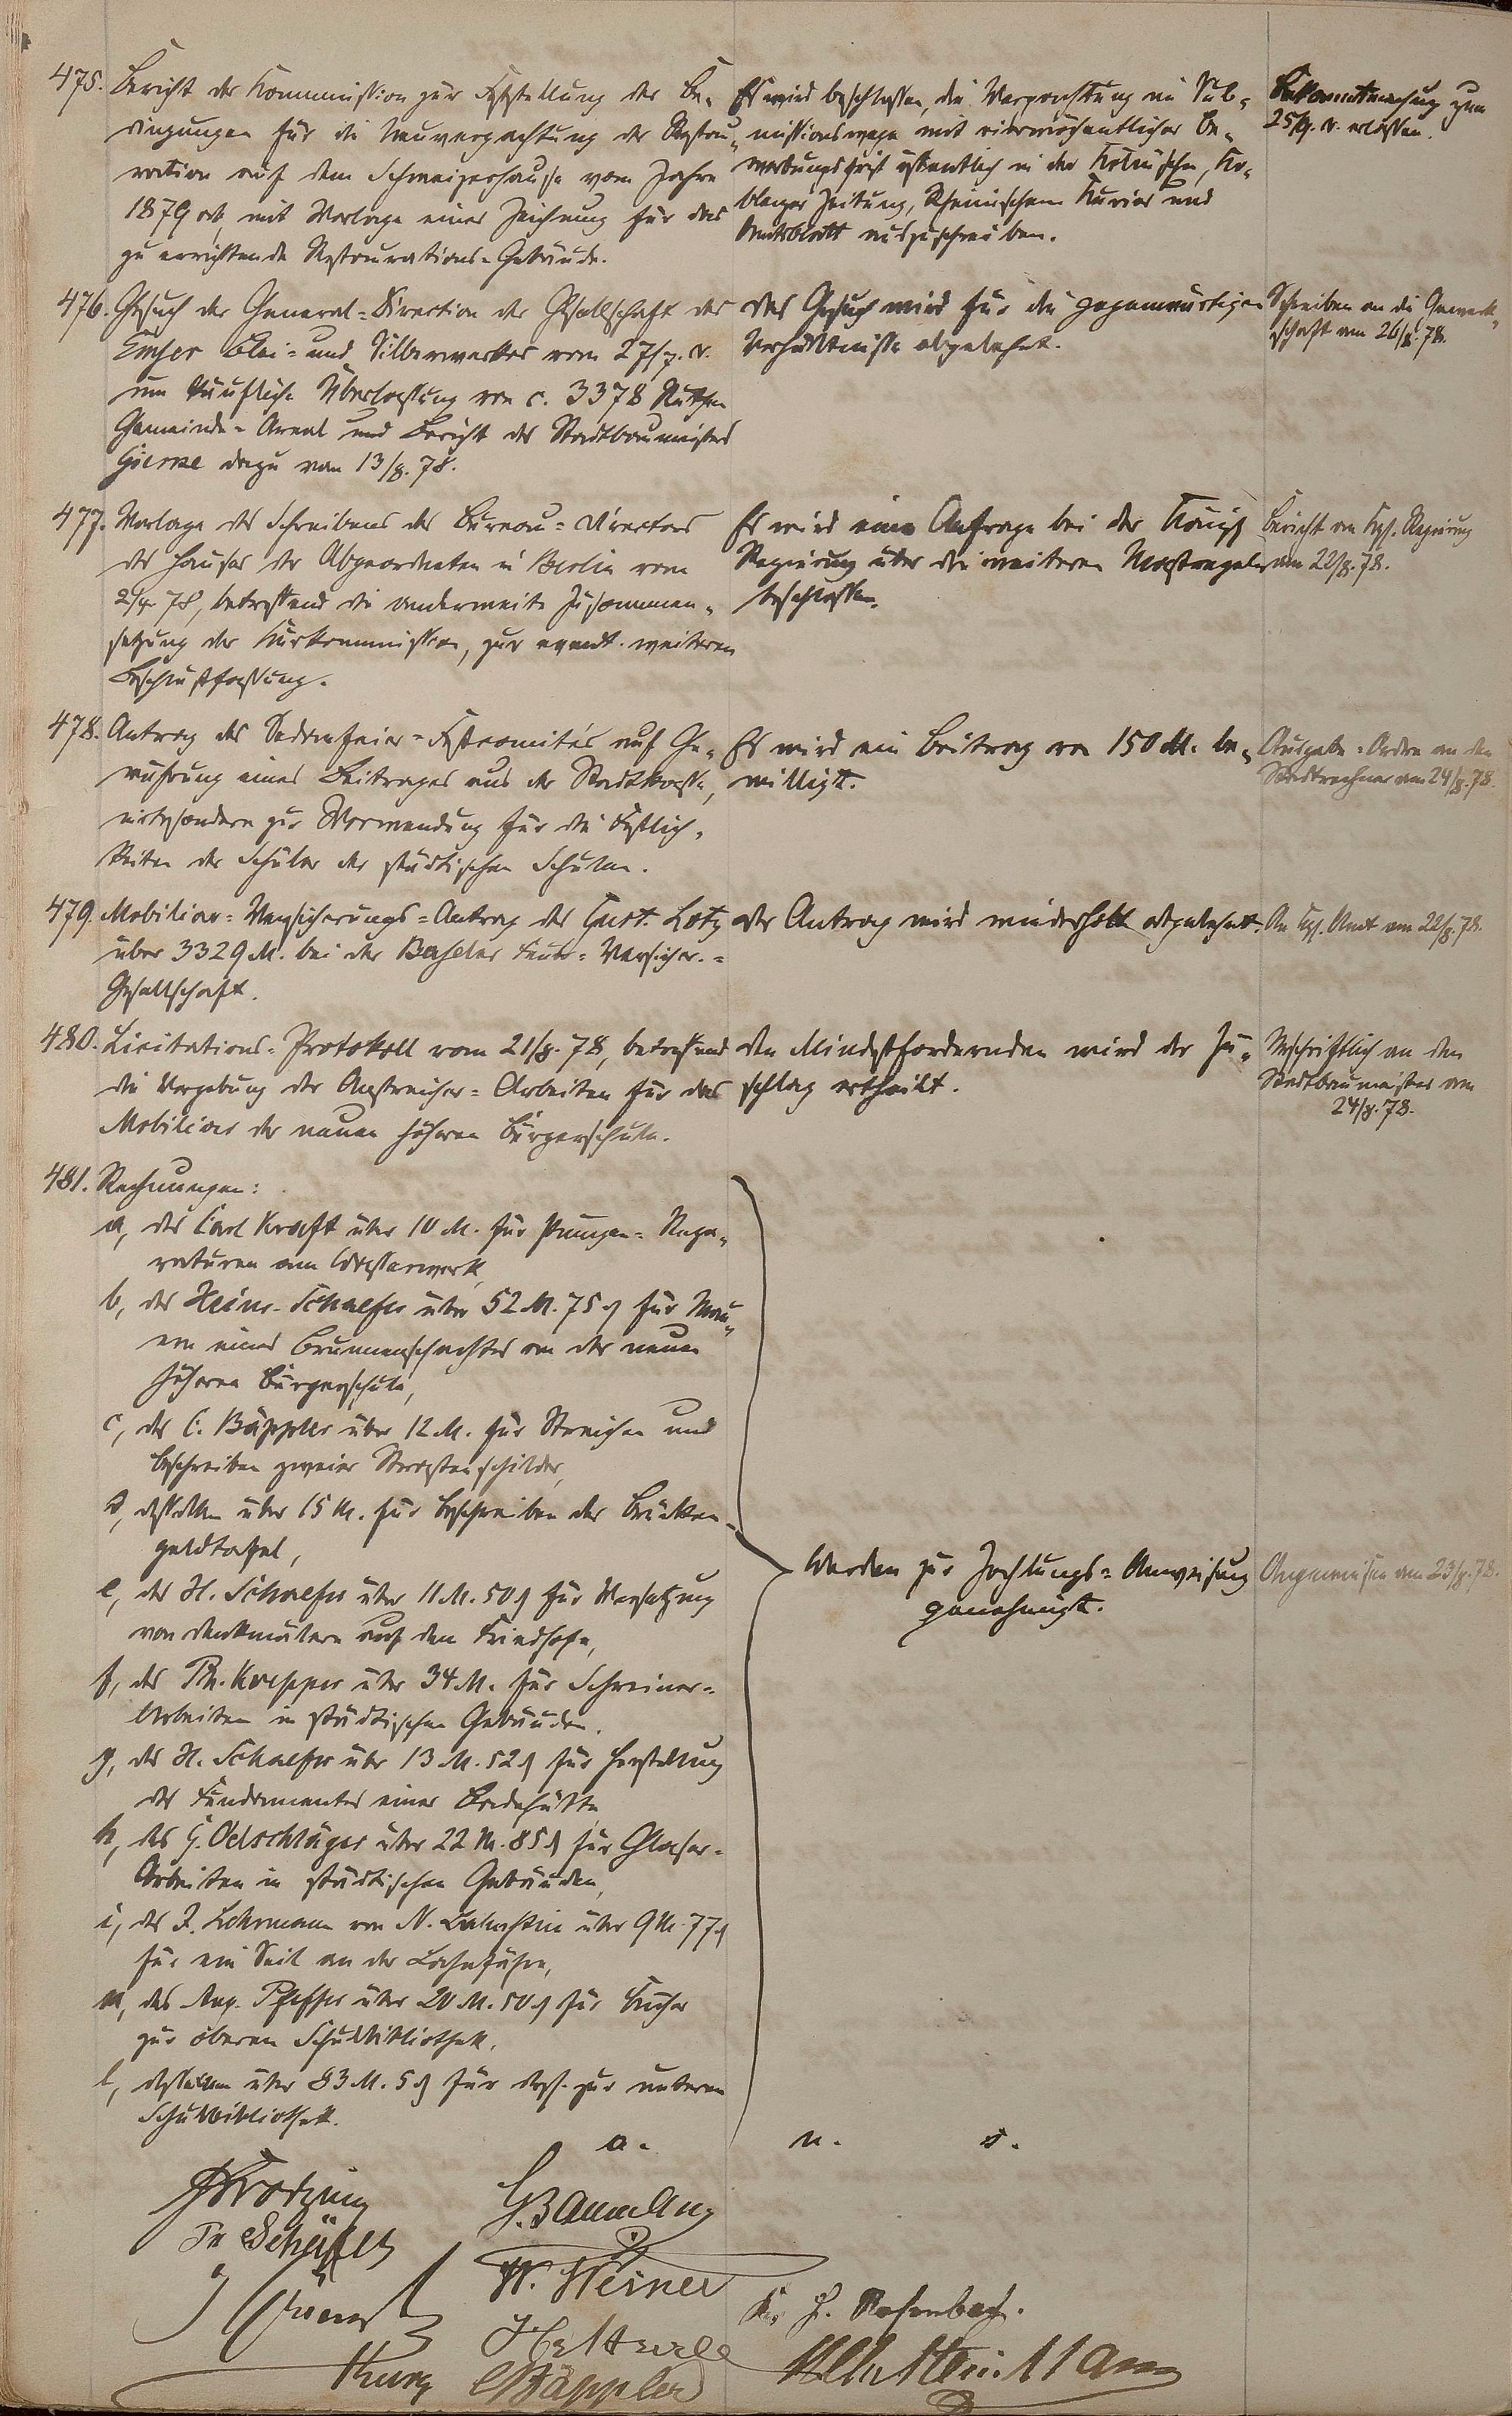 475. Bericht der Kommission zur Feststellung der Be-
dingungen für die Neuverpachtung der Restau-
ration auf dem Schweizerhause vom Jahre
1879 ab, mit Vorlage einer Zeichnung für das
zu errichtende Restaurations-Gebäude.
Es wird beschlossen, die Verpachtung im Sub-
missionswege mit vierwöchentlicher Be-
werbungsfrist öffentlich in der Kölnischen, Ko-
blenzer Zeitung, Rheinischen Kurier und
Amtsblatt auszuschreiben.
Bekanntmachung zum
25/9. cr. erlassen.
476. Gesuch der General-Direction der Gesellschaft des
Emser Blei- und Silberwerkes vom 27/7. cr.
um käufliche Überlassung von c. 3378 Ruthen
Gemeinde-Areal und Bericht des Stadtbaumeisters
dazu vom 13/8. 78.
Das Gesuch wird für die gegenwärtigen
Verhältnisse abgelehnt.
Schreiben an die Gewerk-
schaft am 26/8. 78.
477. Vorlage des Schreibens des Bureau-Directors
des Hauses der Abgeordneten in Berlin vom
78, betreffend die anderweite Zusammen-
setzung der Kurkommission, zur event. weiteren
Beschlußfassung.
Es wird eine Anfrage bei der Königl
Regierung über die weiteren Maßregeln
beschlossen.
Bericht an Kgl. Regierung
am 22/8. 78.
478. Antrag des Sedanfeier-Festcomités auf Ge-
währung eines Beitrages aus der Stadtkasse,
insbesondere zur Verwendung für die Festlich-
keiten der Schüler der städtischen Schulen.
Es wird ein Beitrag von 150 M. be-
willigt.
Ausgabe-Ordre an den
Stadtrechner am 24/8. 78.
479. Mobiliar-Versicherungs-Antrag des Gust. Lotz
über 3329 M. bei der Baseler Feuer-Versicher.-
Gesellschaft.
Der Antrag wird wiederholt abgelehnt.
An Kgl. Amt am 22/8. 78.
480. Licitations-Protokoll vom 21/8. 78, betreffend
die Vergebung der Anstreicher-Arbeiten für das
Mobiliar der neuen höheren Bürgerschule.
Den Mindestfordernden wird der Zu-
schlag ertheilt.
Abschriftlich an den
Stadtbaumeister am
24/8. 78.
481. Rechnungen:
a, des Carl Kraft über 10 M. für Pumpen-Repa-
raturen am Wasserwerk,
b, des Heinr. Schaefer über 52 M. 75 ₰ für Mau-
ern eines Brunnenschachtes an der neuen
höheren Bürgerschule,
c, des C. Bäppler über 12 M. für Streichen und
Beschreiben zweier Straßenschilder,
d, desselben über 15 M. für Beschreiben der Brücken-
geldtafel,
e, des H. Schaefer über 11 M. 50 ₰ für Versetzung
von Denkmälern auf dem Friedhofe,
f, des Ph. über 34 M. für Schreiner-
Arbeiten in städtischen Gebäuden.
g, des H. Schaefer über 13 M. 52 ₰ für Herstellung
des Fundamentes einer Badehütte
h, des G. Oelschläger über 22 M. 85 ₰ für Glaser-
Arbeiten in städtischen Gebäuden,
i, des J. Lehrmann von N. Lahnstein über 9 M. 77 ₰
für ein Seil an der Lahnfähre,
k, des Aug. Pfeffer über 20 M. 50 ₰ für Bücher
zur oberen Schulbibliothek,
l, desselben über 83 M. 5 ₰ für desgl. zur unteren
Schulbibliothek.
Werden zur Zahlungs-Anweisung
genehmigt.
Angewiesen am 23/8. 78.
a. u. s.
G. Baumling
Fr Schäfer
W. Werner
F. H. Rosenbach.
Kurz
C Bäppler